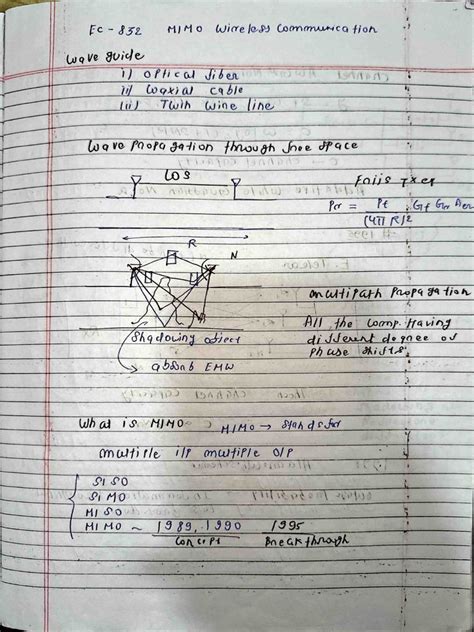 EC-832 MIMO Wireless Communication
Wave guide
i) Optical fiber
ii) Coaxial cable
iii) Twin wire line
Wave Propagation through free space
LOS
Pr = Pt / (4πR)²
R
N
multipath Propagation
Shadowing object
All the comp. having
different degree of
phase shifts.
absorb EMW
What is MIMO
MIMO → stands for
multiple i/p multiple o/p
SISO
SIMO
MISO
MIMO ~ 1989, 1990 1995
Concept Breakthrough